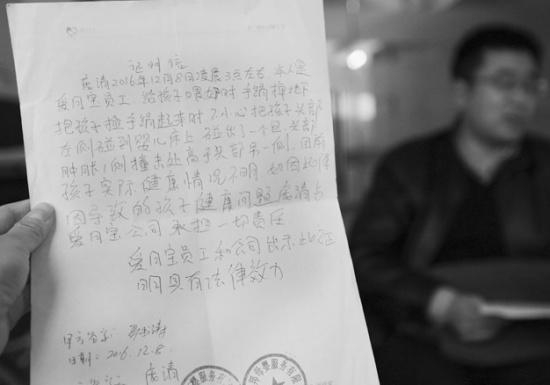 证明信
庞清2016年12月8日凌晨3点左右,本人是
爱月宝员工,给孩子喂奶时手绢掉地下
把孩子捡手绢起来时不小心把孩子头部
左侧碰到婴儿床上碰出了一个包,头部
肿胀,侧撞未处高于头部另一侧,目前
孩子实际健康情况不明,如因此体
因导致的孩子健康问题庞清与
爱月宝公司承担一切责任
爱月宝员工和公司出示此证
明具有法律效力
甲方签字:
日期:2016.12.8
庞清